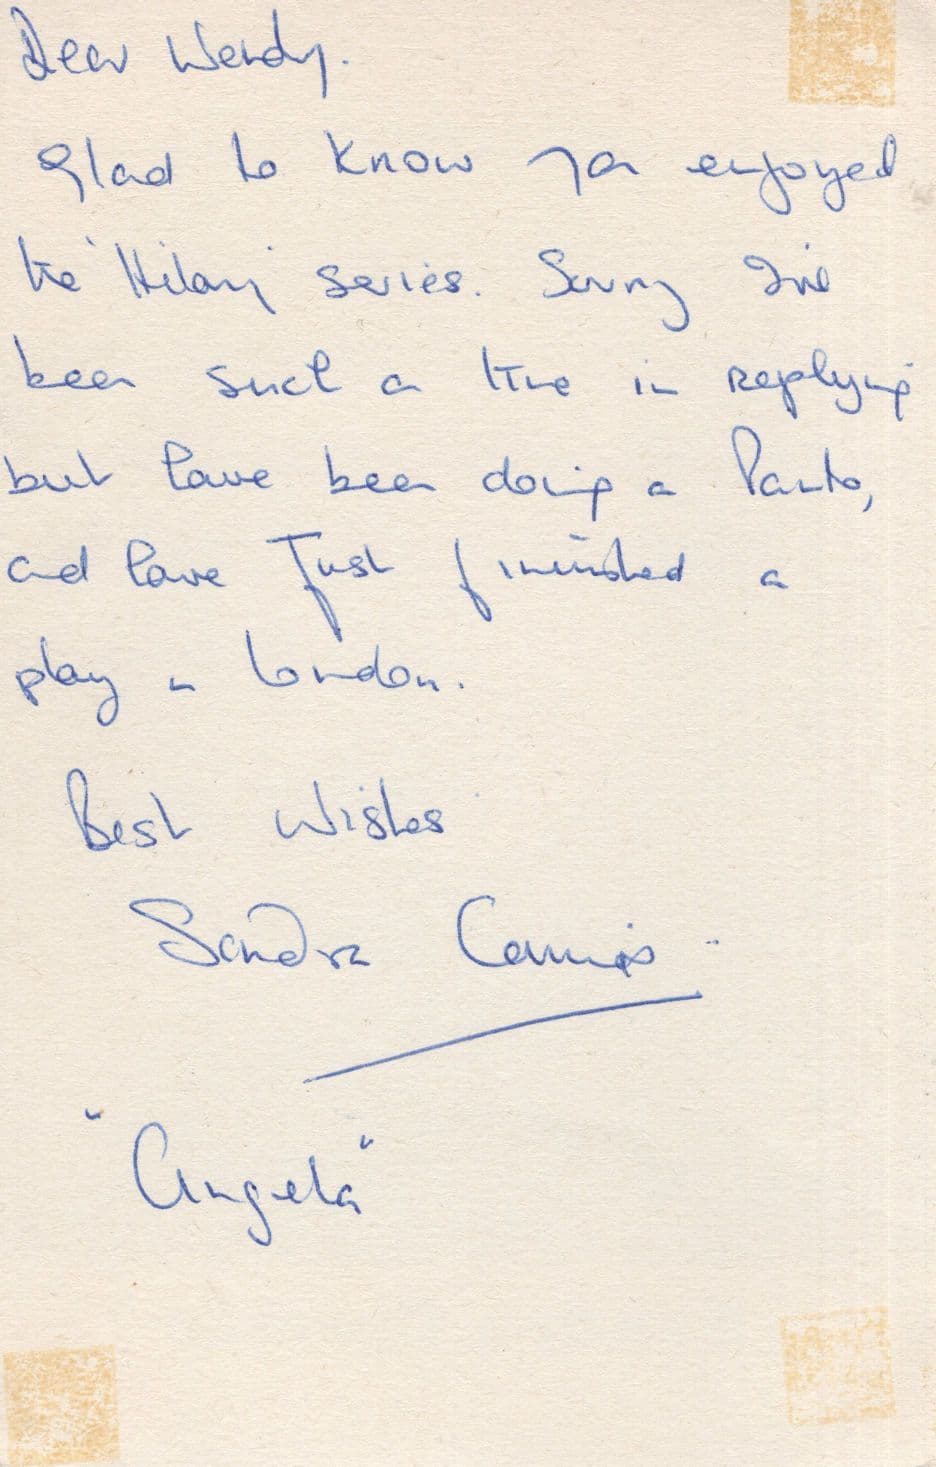 Dear Wendy.
Glad to know you enjoyed
the "Hilary" series. Sorry I've
been such a time in replying
but have been doing a Panto,
and have just finished a
play in London.
Best Wishes
Sandra
"Angela"